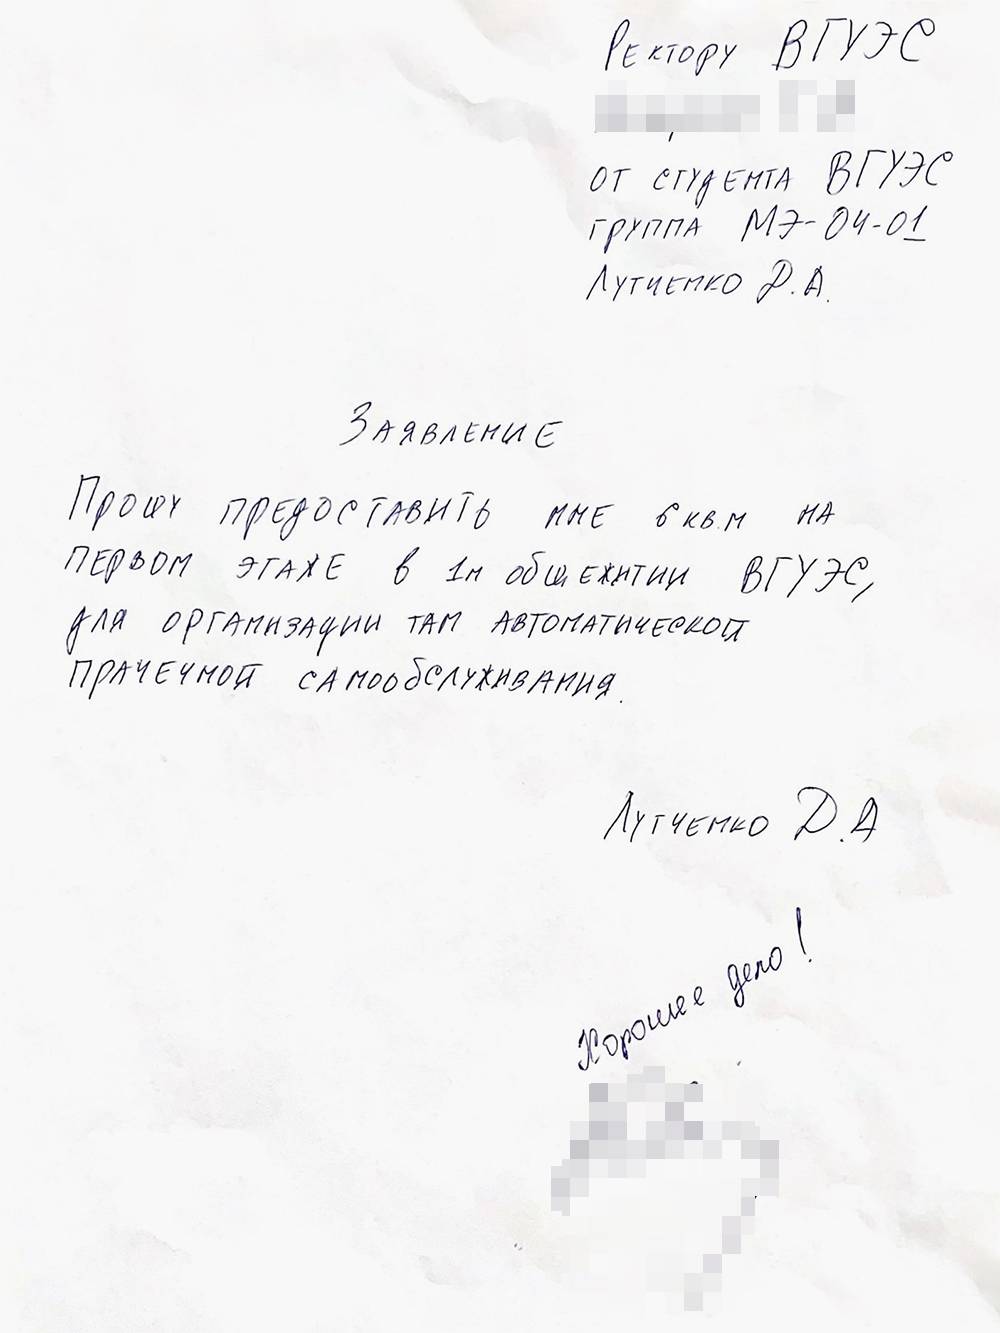 Ректору ВГУЭС
от студента ВГУЭС
группа МЭ-04-01
Лутченко Д.А.
Заявление
Прошу предоставить мне 6 кв.м на
первом этаже в 1м общежитии ВГУЭС,
для организации там автоматической
прачечной самообслуживания.
Лутченко Д.А
Хорошее дело!